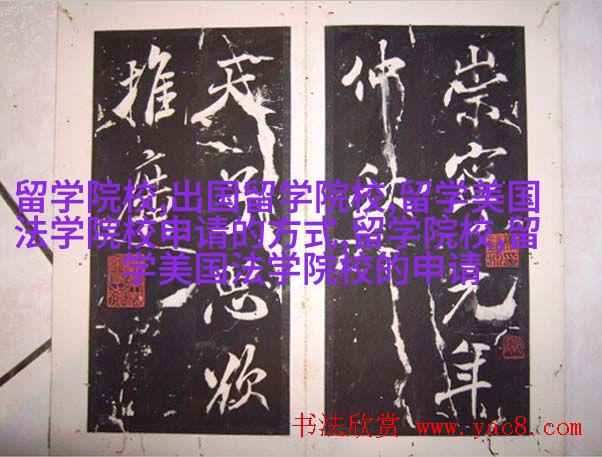 崇寧元年
仲秋
欲
推廣
留学院校,出国留学院校,留学美国
法学院校申请的方式,留学院校,留
学美国法学院校的申请
书法欣赏 www.yac8.com